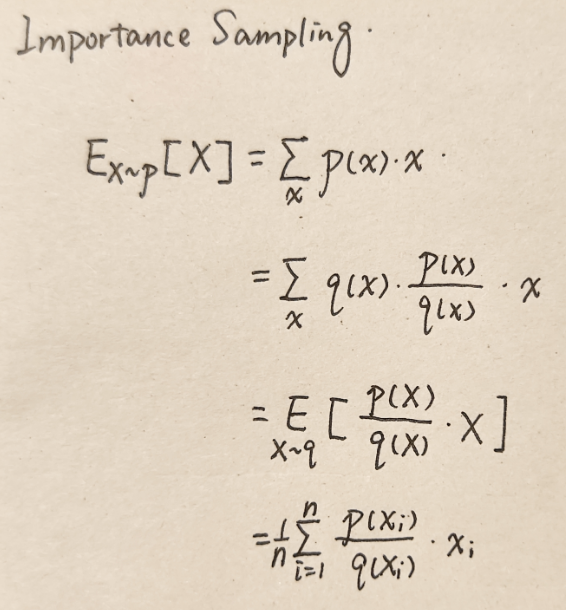 Importance Sampling.
E_{X~p}[X] = ∑_x p(x)·x.
= ∑_x q(x)·\frac{p(x)}{q(x)}·x
= E_{X~q}[\frac{p(X)}{q(X)}·X]
= \frac{1}{n}∑_{i=1}^{n} \frac{p(x_i)}{q(x_i)}·x_i